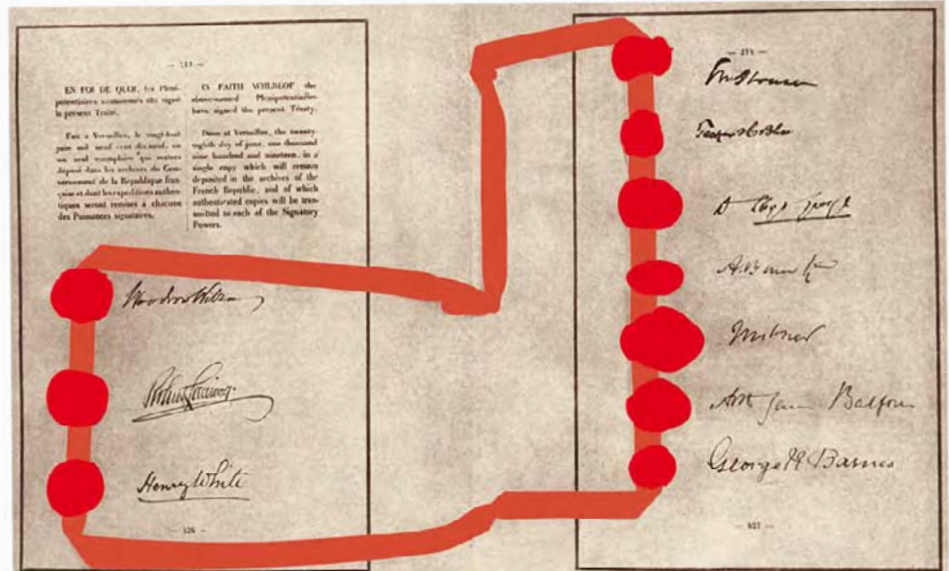 EN FOI DE QUOI, les Pléni-
potentiaires susnommés ont signé
le présent Traité.
Fait à Versailles, le vingt-huit
juin mil neuf cent dix-neuf, en
un seul exemplaire qui restera
déposé dans les archives du Gou-
vernement de la République fran-
çaise et dont les expéditions authen-
tiques seront remises à chacune
des Puissances signataires.
IN FAITH WHEREOF the
above-named Plenipotentiaries
have signed the present Treaty.
Done at Versailles, the twenty-
eighth day of June, one thousand
nine hundred and nineteen, in a
single copy which will remain
deposited in the archives of the
French Republic, and of which
authenticated copies will be trans-
mitted to each of the Signatory
Powers.
Woodrow Wilson
Robert Lansing
Henry White
D Lloyd George
Milner
Arthur James Balfour
George N Barnes